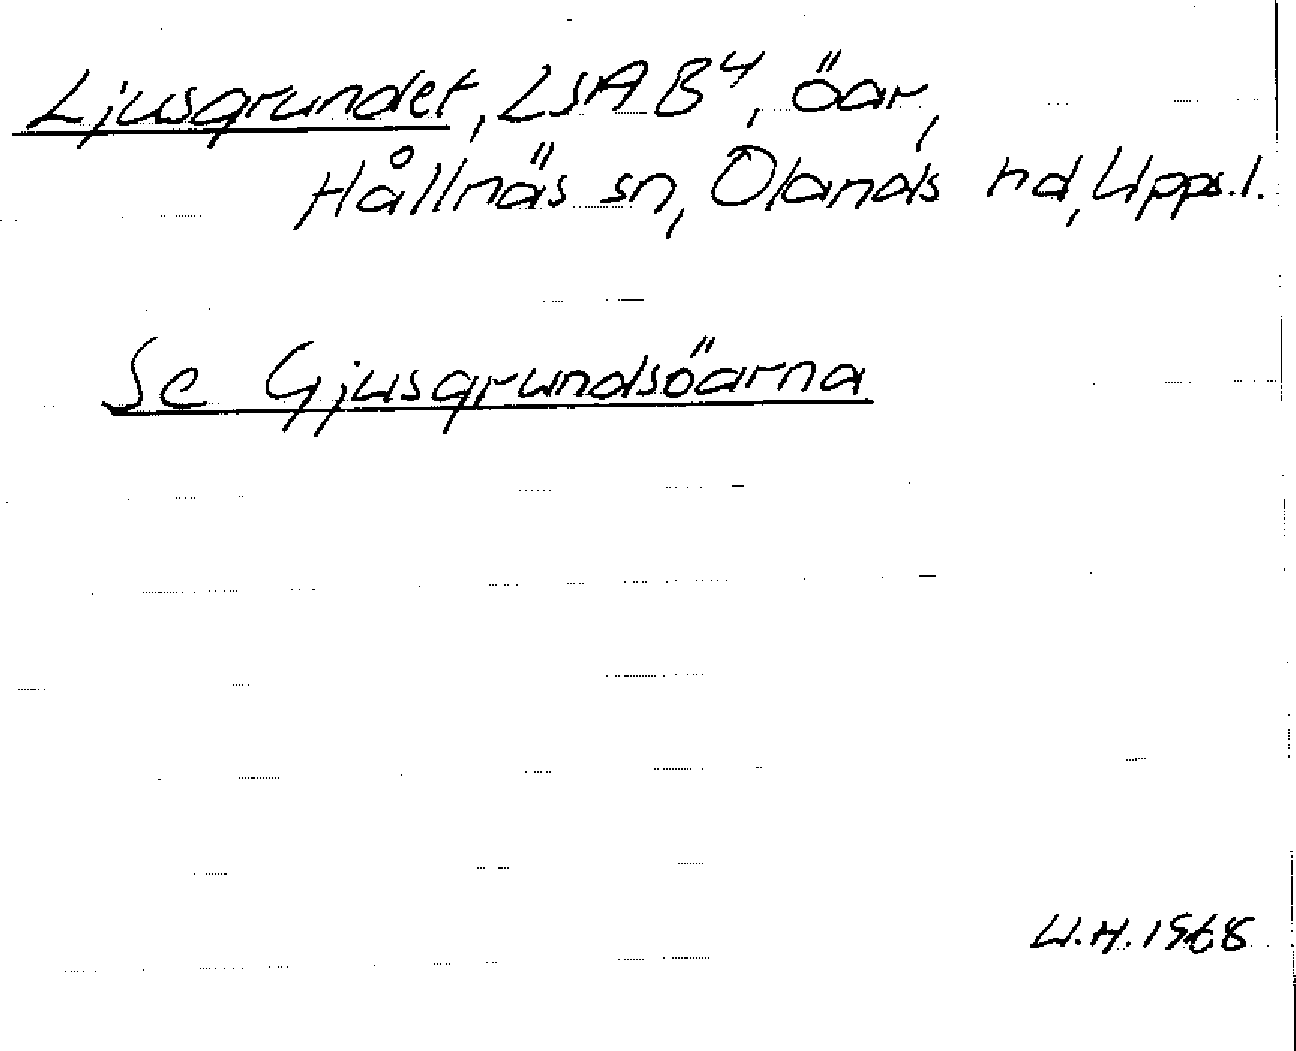 Ljusgrundet, LSA B4, öar,
Hållnäs sn, Olands hd, Upps. l.
Se Gjusgrundsöarna
U.H. 1968